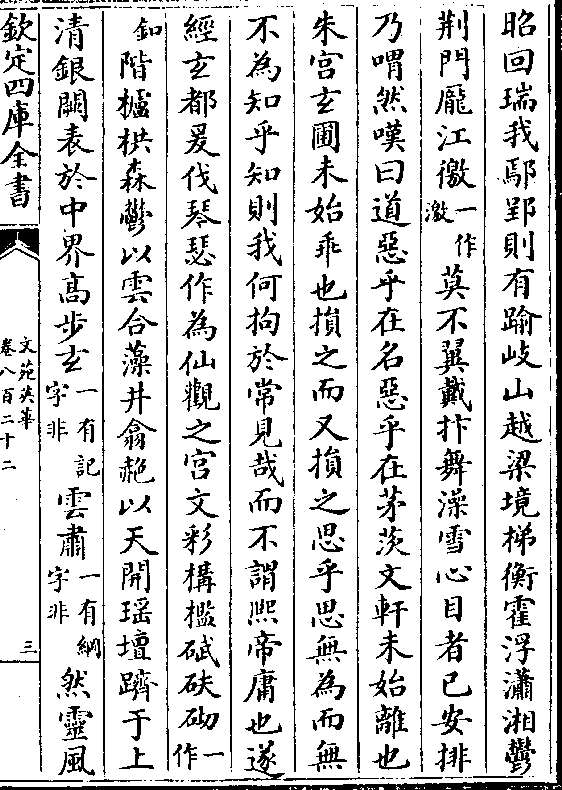 昭回瑞我鄢郢則有踰岐山越梁境梯衡霍浮瀟湘鬱
荆門龎江徼一作激莫不翼戴抃舞澡雪心目者已安排
乃喟然嘆曰道惡乎在名惡乎在茅茨文軒未始離也
朱宫玄圃未始乖也損之而又損之思乎思無為而無
不為知乎知則我何拘於常見哉而不謂熙帝庸也遂
經玄都爰伐琴瑟作為仙觀之宫文彩構檻碔砆砌一作
釦階櫨栱森鬱以雲合藻井翕赩以天開瑶壇躋于上
清銀闕表於中界髙步玄一有記字非雲肅一有綱字非然靈風
欽定四庫全書
文苑英華
卷八百二十二
三